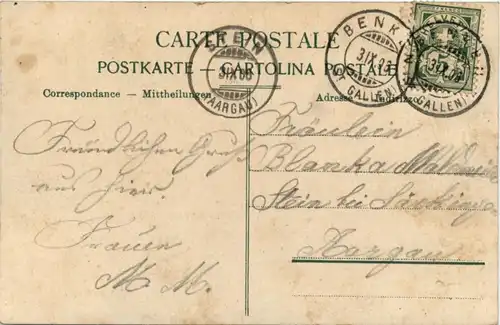 CARTE POSTALE
POSTKARTE — CARTOLINA POSTALE
Correspondance — Mittheilungen
Adresse Indirizzo
STEIN
3 IX 06
(AARGAU)
BENK
3 IX 06
GALLEN
3 IX 06
GALLEN
HELVE
Freundlichen Gruß
aus hier.
M. M.
Fräulein
Blanka
Stein bei Säckingen
Aargau